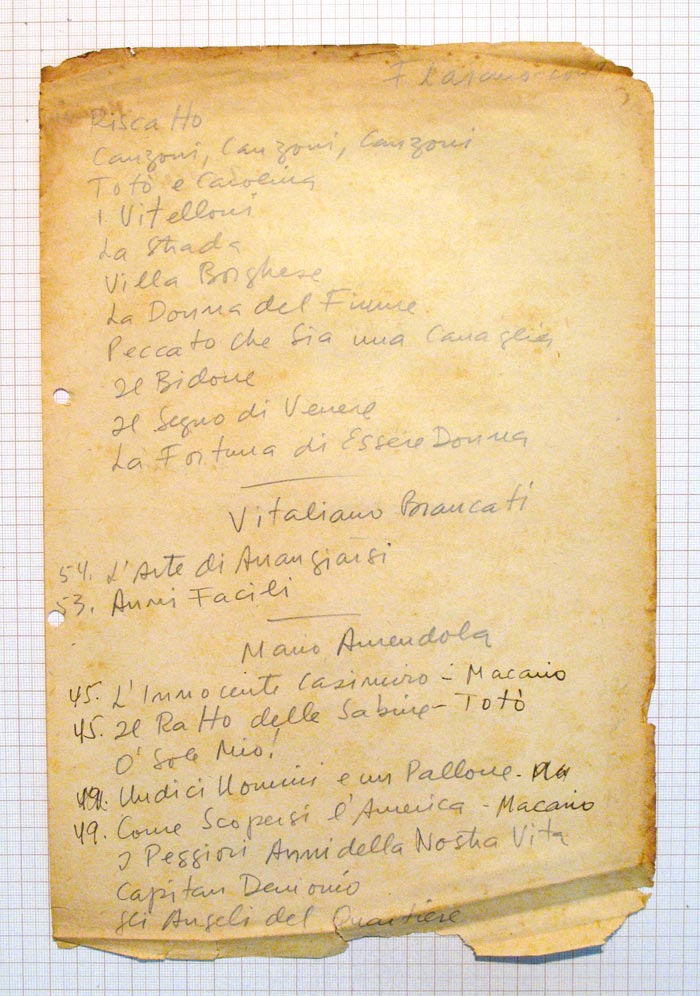 Riscatto
Canzoni, Canzoni, Canzoni
Totò e Carolina
I Vitelloni
La Strada
Villa Borghese
La Donna del Fiume
Peccato che Sia una Canaglia
Il Bidone
Il Segno di Venere
La Fortuna di Essere Donna
Vitaliano Brancati
54. L'Arte di Arrangiarsi
53. Anni Facili
Mario Amendola
45. L'Innocente Casimiro - Macario
45. Il Ratto delle Sabine - Totò
O' Sole Mio!
Undici Uomini e un Pallone -
49. Come Scopersi l'America - Macario
I Peggiori Anni della Nostra Vita
Capitan Demonio
Gli Angeli del Quartiere